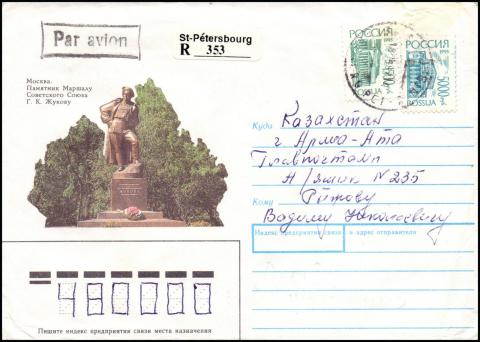 Par avion
St-Pétersbourg
R 353
РОССИЯ
1995
ROSSIJA
РОССИЯ
1995
5000
ROSSIJA
Москва.
Памятник Маршалу
Советского Союза
Г. К. Жукову
Куда Казахстан
г Алма-Ата
Главпочтамт
А/ящик N 235
Кому
Вадиму Николаевичу
Индекс предприятия связи и адрес отправителя
480000
Пишите индекс предприятия связи места назначения